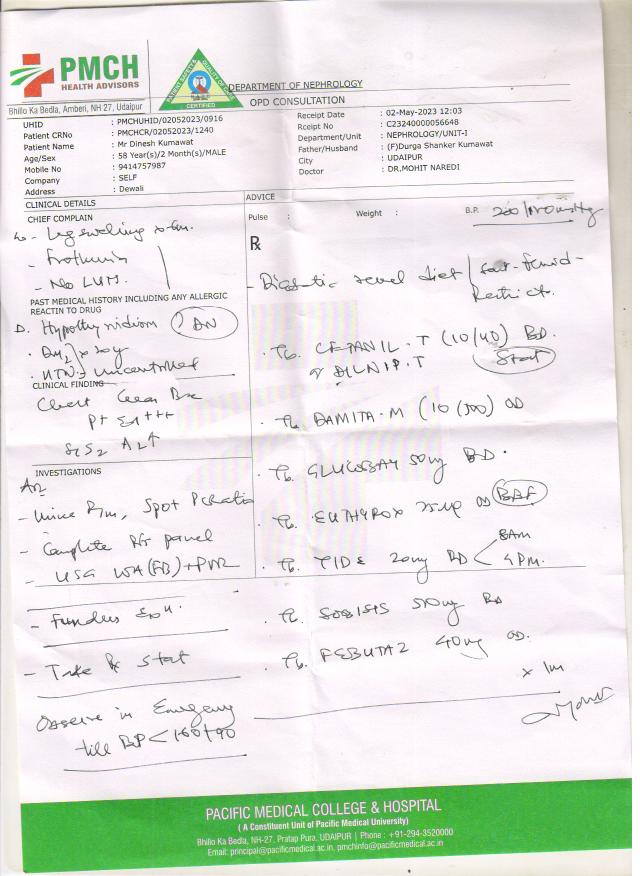 PMCH
HEALTH ADVISORS
Bhillo Ka Bedla, Amberi, NH 27, Udaipur
PATIENT SAFETY & QUALITY OF CARE
CERTIFIED
DEPARTMENT OF NEPHROLOGY
OPD CONSULTATION
UHID : PMCHUHID/02052023/0916
Patient CRNo : PMCHCR/02052023/1240
Patient Name : Mr Dinesh Kumawat
Age/Sex : 58 Year(s)/2 Month(s)/MALE
Mobile No : 9414757987
Company : SELF
Address : Dewali
Receipt Date : 02-May-2023 12:03
Rceipt No : C23240000056648
Department/Unit : NEPHROLOGY/UNIT-I
Father/Husband : (F)Durga Shanker Kumawat
City : UDAIPUR
Doctor : DR.MOHIT NAREDI
CLINICAL DETAILS
ADVICE
CHIEF COMPLAIN
Pulse : Weight : B.P.
- Leg swelling
- Frothuria
- No LUTS.
PAST MEDICAL HISTORY INCLUDING ANY ALLERGIC
REACTIN TO DRUG
Hypothyroidism DN
HTN Uncontrolled
CLINICAL FINDING
Chest Clear
S1S2
INVESTIGATIONS
- Urine R/m, Spot
- Complete panel
- USG
- Fundus
- Take Rx stat
Observe in Emergency
till BP < 160/90
Rx
- Diabetic renal diet / salt-fluid-
Restrict.
Tb. CETANIL-T (10/40) BD.
DILNIP.T Stat
Tb. DAMITA-M (10/500) OD
Tb. GLUCOBAY 50mg BD.
Tb. EUTHYROX 25 OD BBF
Tb. TIDE 20mg BD < 8AM
4PM.
Tb. SOBISIS 500mg BD
Tb. FEBUTAZ 40mg OD.
x 1m
PACIFIC MEDICAL COLLEGE & HOSPITAL
( A Constituent Unit of Pacific Medical University)
Bhillo Ka Bedla, NH-27, Pratap Pura, UDAIPUR | Phone : +91-294-3520000
Email: principal@pacificmedical.ac.in, pmchinfo@pacificmedical.ac.in